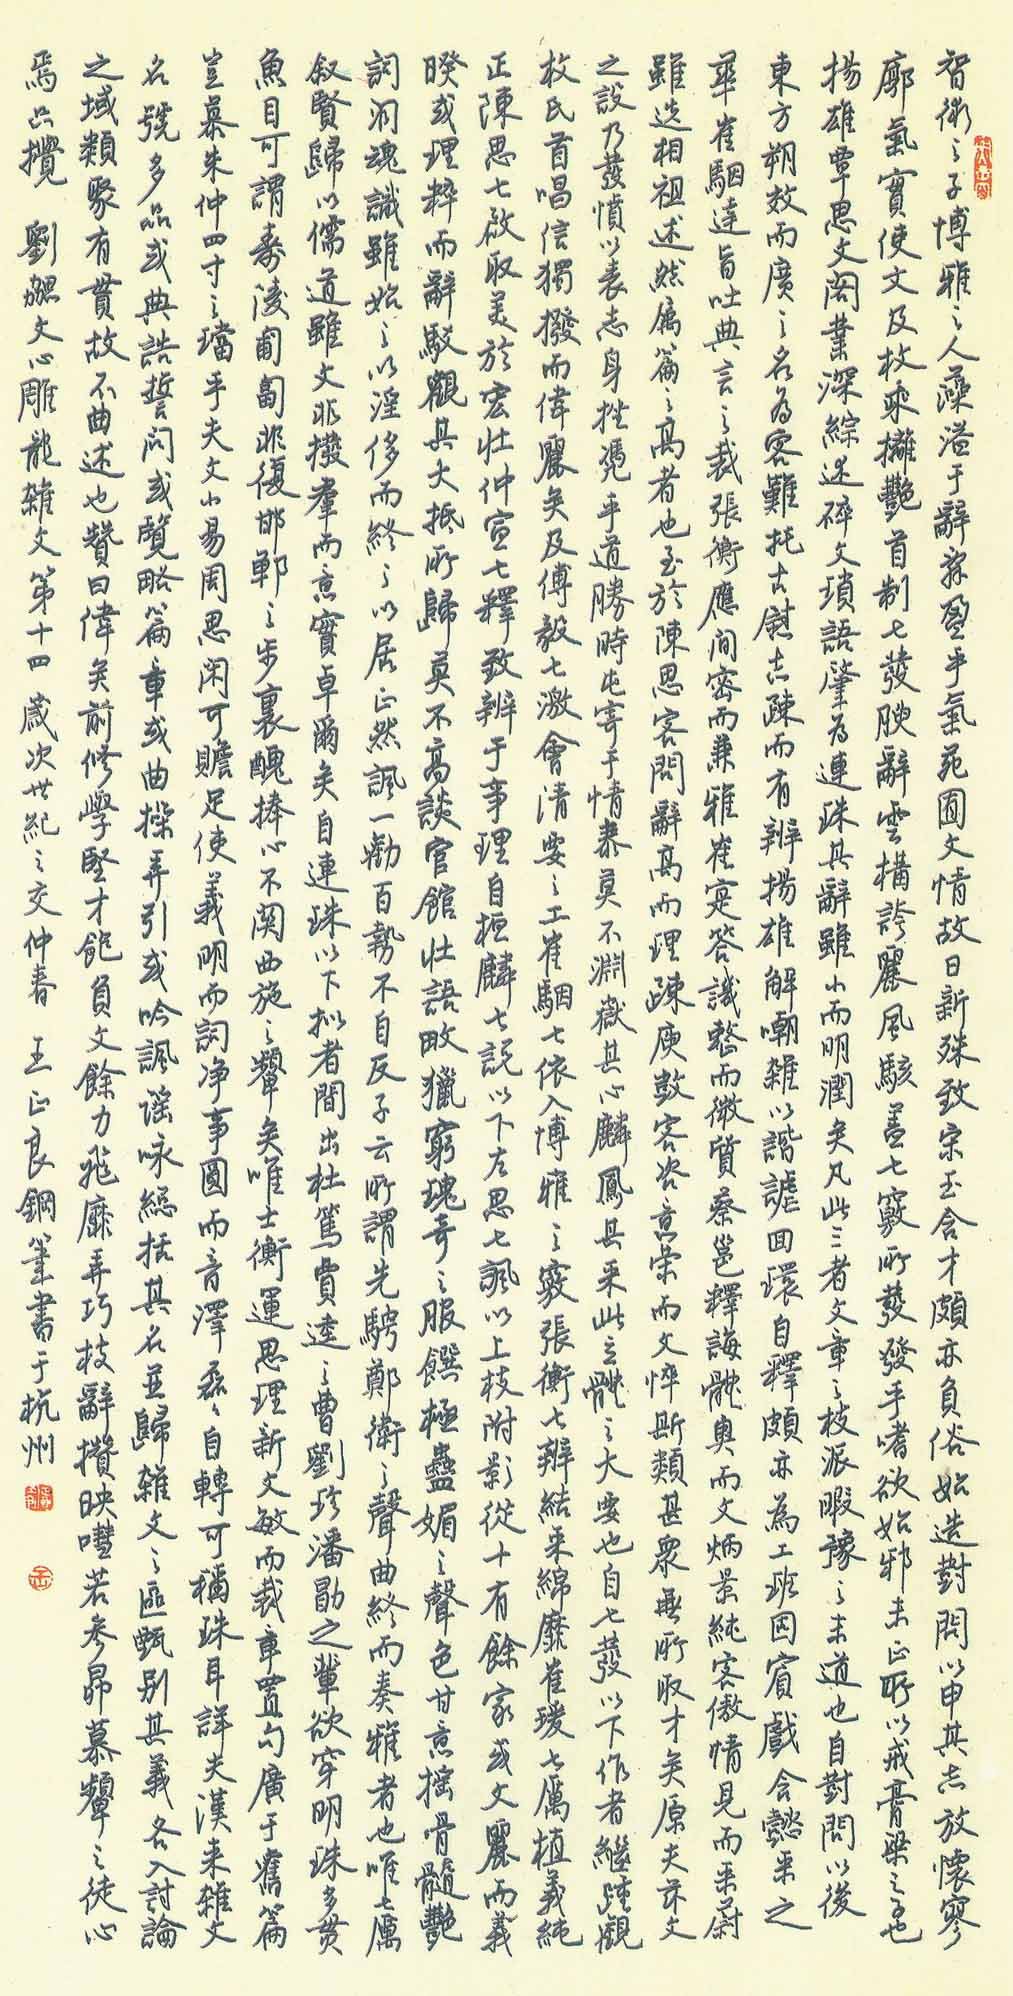 智術之子博雅之人藻溢于辭辭盈乎氣苑囿文情故日新殊致宋玉含才頗亦負俗始造對問以申其志放懷寥
廓氣實使文及枚乘攡艷首制七發腴辭雲構誇麗風駭蓋七竅所發發乎嗜欲始邪末正所以戒膏粱之子也
揚雄覃思文闊業深綜述碎文瑣語肇為連珠其辭雖小而明潤矣凡此三者文章之枝派暇豫之末道也自對問以後
東方朔效而廣之名為客難托古慰志疎而有辨揚雄解嘲雜以諧謔回環自釋頗亦為工班固賓戲含懿采之
華崔駰達旨吐典言之裁張衡應間密而兼雅崔寔答譏整而微質蔡邕釋誨體奧而文炳景純客傲情見而采蔚
雖迭相祖述然屬篇之高者也至於陳思客問辭高而理疎庾敳客咨意榮而文悴斯類甚眾無所取才矣原夫茲文
之設乃發憤以表志身挫憑乎道勝時屯寄于情泰莫不淵嶽其心麟鳳其采此立體之大要也自七發以下作者繼踵觀
枚氏首唱信獨撥而偉麗矣及傅毅七激會清要之工崔駰七依入博雅之竅張衡七辨結采綿靡崔瑗七厲植義純
正陳思七啟取美於宏壯仲宣七釋致辨于事理自桓麟七説以下左思七諷以上枝附影從十有餘家或文麗而義
暌或理粹而辭駁觀其大抵所歸莫不高談宮館壯語畋獵窮瑰奇之服饌極蠱媚之聲色甘意搖骨髓艷
詞洞魂識雖始之以淫侈而終之以居正然諷一勸百勢不自反子云所謂先騁鄭衛之聲曲終而奏雅者也唯七厲
敘賢歸以儒道雖文非撥羣而意實卓爾矣自連珠以下拟者間出杜篤賈逵之曹劉珍潘勖之輩欲穿明珠多貫
魚目可謂壽陵匍匐非復邯鄲之步裏醜捧心不関西施之顰矣唯士衡運思理新文敏而裁章置句廣于舊篇
豈慕朱仲四寸之璫乎夫文小易周思閑可贍足使義明而詞净事圓而音澤磊磊自轉可稱珠耳詳夫漢来雜文
名號多品或典誥誓問或覽略篇章或曲操弄引或吟諷謡咏總括其名並歸雜文之區甄别其義各入討論
之域類聚有貫故不曲述也贊曰偉矣前修學堅才飽負文餘力飛靡弄巧枝辭攢映嘒若參昴慕顰之徒心
焉只攪 劉勰文心雕龍雜文第十四歲次世紀之交仲春 王正良鋼筆書于杭州